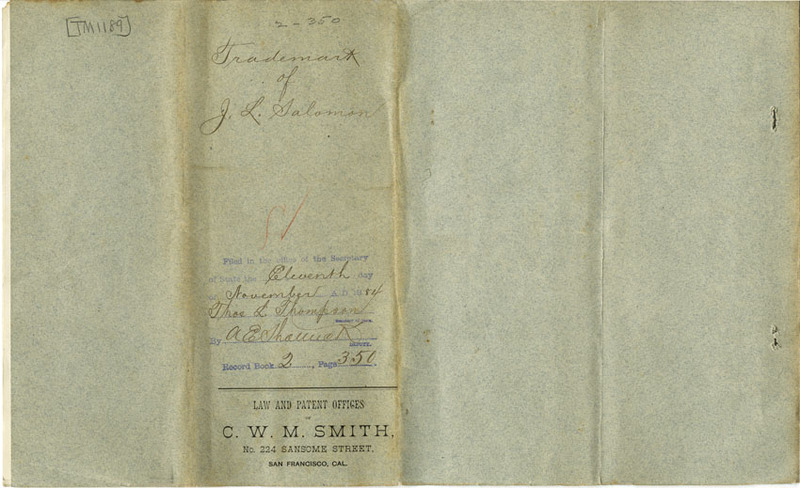 [TM1189]
2-350
Trademark
of
J. L. Salomon
Filed in the office of the Secretary
of State the Eleventh day
of November A. D. 1884
Thos L. Thompson
Secretary of State.
By A. E. Shattuck
Deputy.
Record Book 2, Page 350.
LAW AND PATENT OFFICES
OF
C. W. M. SMITH,
No. 224 SANSOME STREET,
SAN FRANCISCO, CAL.